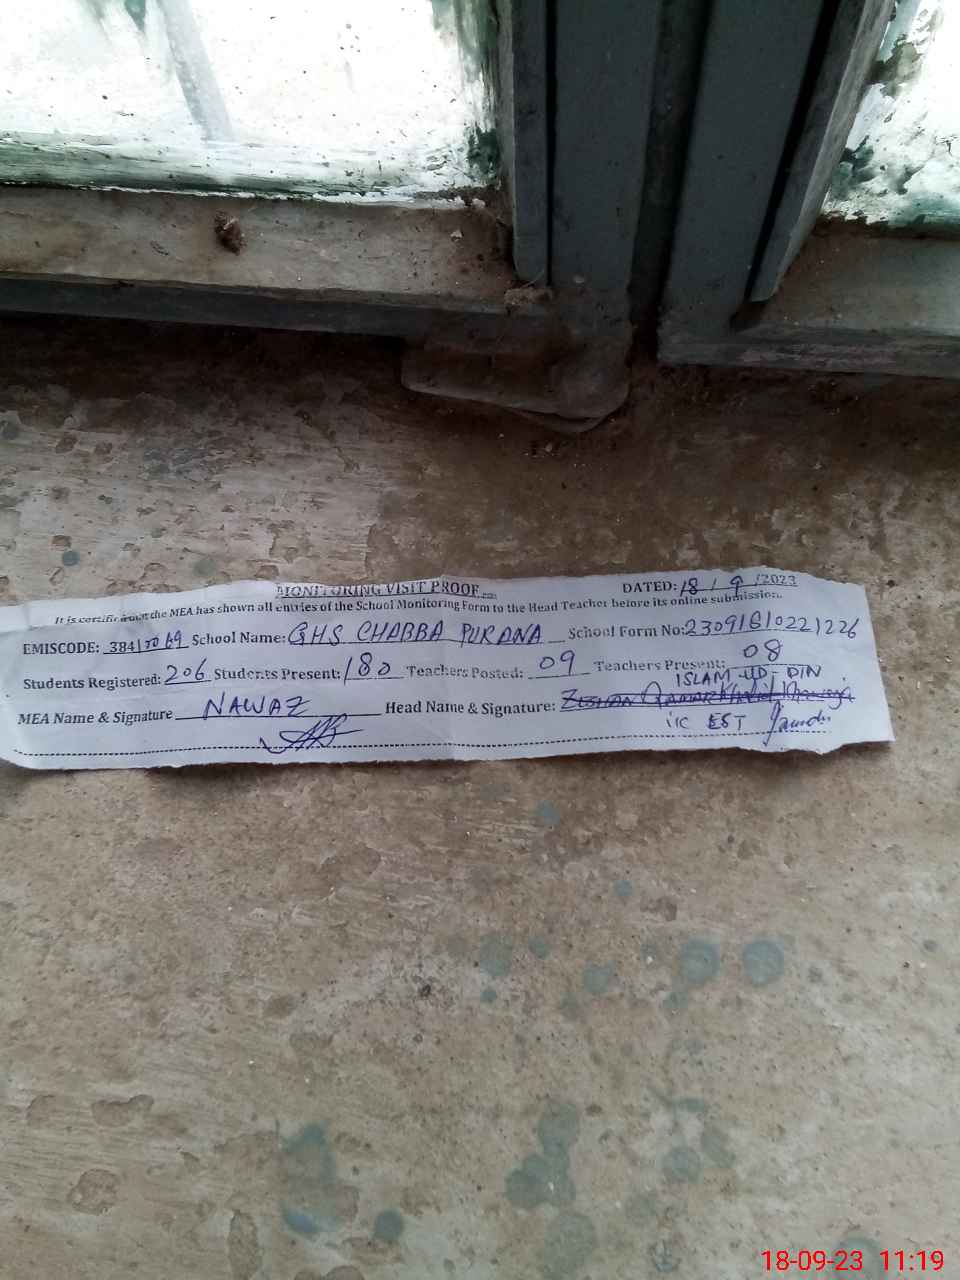 MONITORING VISIT PROOF DATED: 18 / 9 /2023
It is certified that the MEA has shown all entries of the School Monitoring Form to the Head Teacher before its online submission.
EMISCODE: 38412069 School Name: GHS CHABBA PURANA School Form No: 23091810221226
Students Registered: 206 Students Present: 180 Teachers Posted: 09 Teachers Present: 08
ISLAM-UD-DIN
MEA Name & Signature NAWAZ Head Name & Signature:
i/c EST
18-09-23 11:19